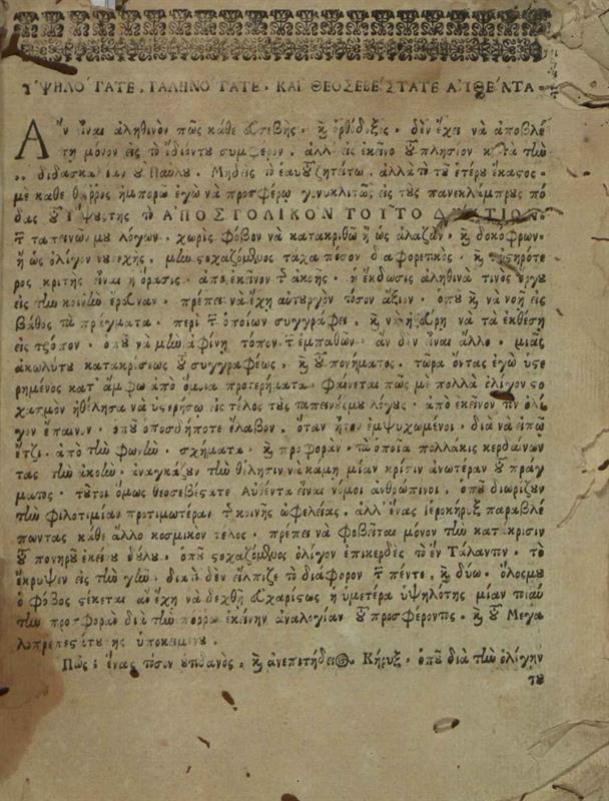 ΥΨΗΛΟΤΑΤΕ, ΓΑΛΗΝΟΤΑΤΕ, ΚΑΙ ΘΕΟΣΕΒΕΣΤΑΤΕ ΑΥΘΕΝΤΑ
Ἂν εἶναι ἀληθινὸν πῶς κάθε εὐσεβὴς, καὶ ὀρθόδοξος, δὲν ἔχει νὰ ἀποβλέ
πῃ μόνον εἰς τὸ ἴδιόντου συμφέρον, ἀλλ' εἰς ἐκεῖνο τοῦ πλησίον κατὰ τὴν
διδασκαλίαν τοῦ Παύλου. Μηδεὶς τὸ ἑαυτοῦ ζητείτω, ἀλλὰ τὸ τοῦ ἑτέρου ἕκαστος.
μὲ κάθε θάῤῥος ἠμπορῶ ἐγὼ νὰ προσφέρω γονυκλιτῶς εἰς τοὺς πανεκλάμπρους πό
δας τοῦ Ὕψους της τὸ ΑΠΟΣΤΟΛΙΚΟΝ ΤΟΥΤΟ ΔΙΚΤΙΟΝ
τῶν ταπεινῶν μου λόγων, χωρὶς φόβον νὰ κατακριθῶ ἢ ὡς ἀλαζὼν, καὶ δοκόφρων,
ἢ ὡς ὀλίγον νουνεχὴς,
ρος κριτὴς εἶναι ἡ ὅρασις, ἀπὸ ἐκεῖνον τῆς ἀκοῆς, ἡ ἔκδωσις ἀληθινὰ τινὸς ἔργου
εἰς τὴν κοινὴν ἔρευναν, πρέπει νὰ ἔχῃ αὐτουργὸν τόσον ἄξιον, ὁποῦ καὶ νὰ νοῇ εἰς
βάθος τὰ πράγματα, περὶ τῶν ὁποίων συγγράφει, καὶ νὰ ἠξεύρῃ νὰ τὰ ἐκθέσῃ
εἰς τρόπον, ὁποῦ νὰ μὴν ἀφίνῃ τόπον τῶν ἐμπαθῶν, ἂν δὲν εἶναι ἄλλο, μιᾶς
ἀκωλύτου κατακρίσεως τοῦ συγγραφέως, καὶ τοῦ πονήματος. τώρα ὄντας ἐγὼ ὑστε
ρημένος κατ' ἄμφω ἀπὸ ὅμοια προτερήματα, φαίνεται πῶς μὲ πολλὰ ὀλίγον στο
χασμὸν ἠθέλησα νὰ ὑστερήσω εἰς τέλος τοὺς ταπεινούςμου λόγους, ἀπὸ ἐκεῖνον τὸν ὀλί
γον ἔπαινον, ὁποῦ ὁπωσδήποτε ἔλαβον, ὅταν ἦτον ἐμψυχωμένοι, διὰ νὰ εἰπῶ
ἔτζι, ἀπὸ τὴν φωνὴν, σχήματα, καὶ προφορὰν, τὰ ὁποῖα πολλάκις κερδαίνον
τας τὴν ἀκοὴν, ἀναγκάζουν τὴν θέλησιν νὰ κάμῃ μίαν κρίσιν ἀνωτέραν τοῦ πράγ
ματος. τοῦτοι ὅμως θεοσεβέστατε Αὐθέντα εἶναι νόμοι ἀνθρώπινοι, ὁποῦ διωρίζουν
τὴν φιλοτιμίαν προτιμωτέραν τῆς κοινῆς ὠφελείας. ἀλλ' ἕνας ἱεροκήρυξ παραβλέ
πωντας κάθε ἄλλο κοσμικὸν τέλος, πρέπει νὰ φοβῆται μόνον τὴν κατάκρισιν
τοῦ πονηροῦ ἐκείνου δούλου, ὁποῦ στοχαζόμενος ὀλίγον ἐπικερδὲς τὸ ἓν Τάλαντον, τὸ
ἔκρυψεν εἰς τὴν γῆν, διατὶ δὲν ἔλπιζε τὸ διάφορον τῶν πέντε, καὶ δύω. ὅλος μου
ὁ φόβος στέκεται ἂν ἔχῃ νὰ δεχθῇ εὐχαρίστως ἡ ὑμετέρα ὑψηλότης μίαν ποιαύ
την προσφορὰν διὰ τὴν πόῤῥω ἐκείνην ἀναλογίαν τοῦ προσφέροντος, καὶ τοῦ Μεγα
λοπρεπεστάτου της ὑποκειμένου.
Πῶς; ἕνας τόσον οὐτιδανὸς, καὶ ἀνεπιτήδειος Κήρυξ, ὁποῦ διὰ τὴν ὀλίγην
του